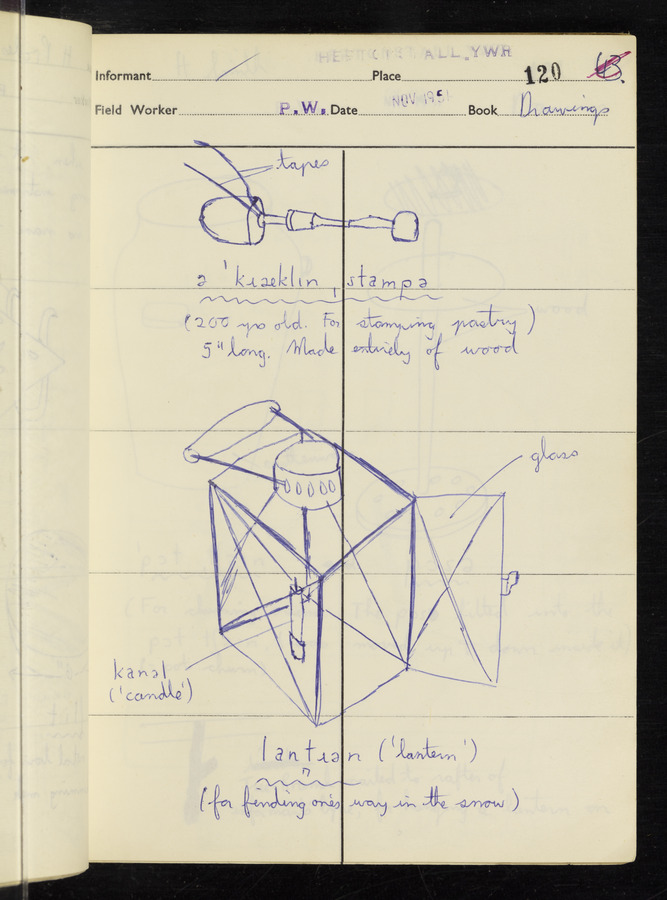 Informant Place 120
Field Worker P.W. Date NOV 1951 Book Drawings
tapes
ə ˈkɹæklin ˌstampə
(200 yrs old. For stamping pastry)
5" long. Made entirely of wood
glass
kanəl
('candle')
lantɹən ('lantern')
(for finding one's way in the snow)